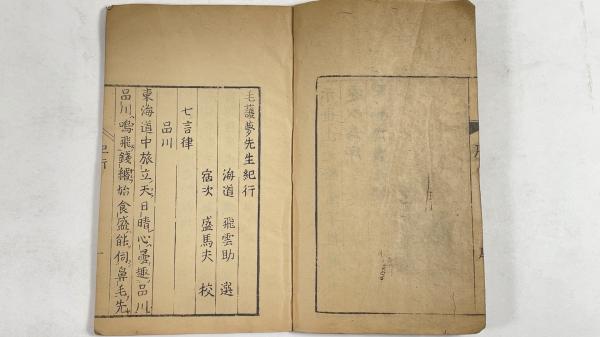 毛護夢先生紀行
海道 飛雲助 選
宿次 盛馬夫 校
七言律
品川
東海道中旅立天日晴心曇趣品川
品川鳴飛錢始食盛能伺鼻毛先
紀行